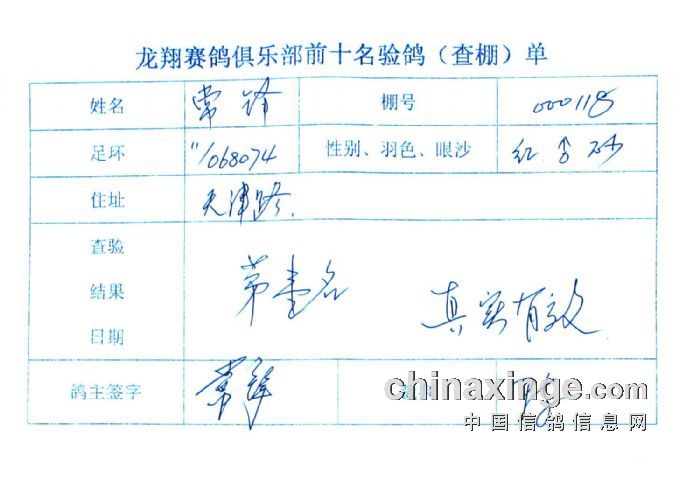 龙翔赛鸽俱乐部前十名验鸽（查棚）单
姓名 常锋 棚号 000118
足环 11/068074 性别、羽色、眼沙 红 砂
住址 天津路.
查验
结果 第壹名 真实有效
日期
鸽主签字 常锋
chinaxinge.com
中国信鸽信息网